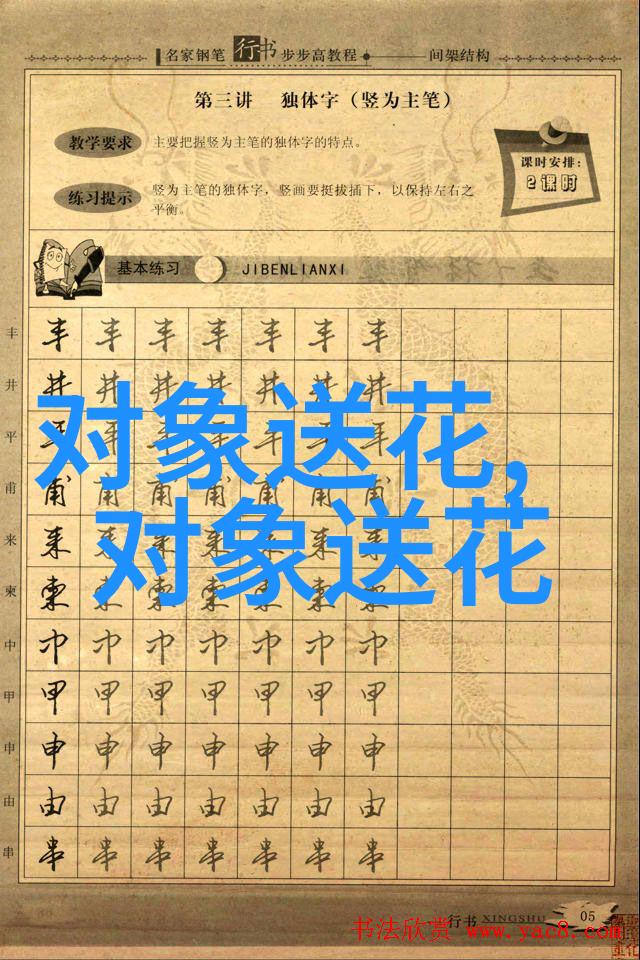 名家钢笔行书步步高教程 间架结构
第三讲 独体字（竖为主笔）
教学要求 主要把握竖为主笔的独体字的特点。
课时安排:
2课时
练习提示 竖为主笔的独体字，竖画要挺拔插下，以保持左右之
平衡。
基本练习 JIBENLIANXI
丰 丰 丰 丰 丰 丰 丰 丰
井 井 井 井 井 井 井 井
平 平 平 平 平 平 平 平
对象送花,
甫 甫 甫 甫 甫 甫 甫 甫
来 来 来 来 来 来 来 来
对象送花
柬 柬 柬 柬 柬 柬 柬 柬
中 中 中 中 中 中 中 中
甲 甲 甲 甲 甲 甲 甲 甲
申 申 申 申 申 申 申 申
由 由 由 由 由 由 由 由
串 串 串 串 串 串 串 串
行书 XINGSHU 05
书法欣赏 www.yac8.com